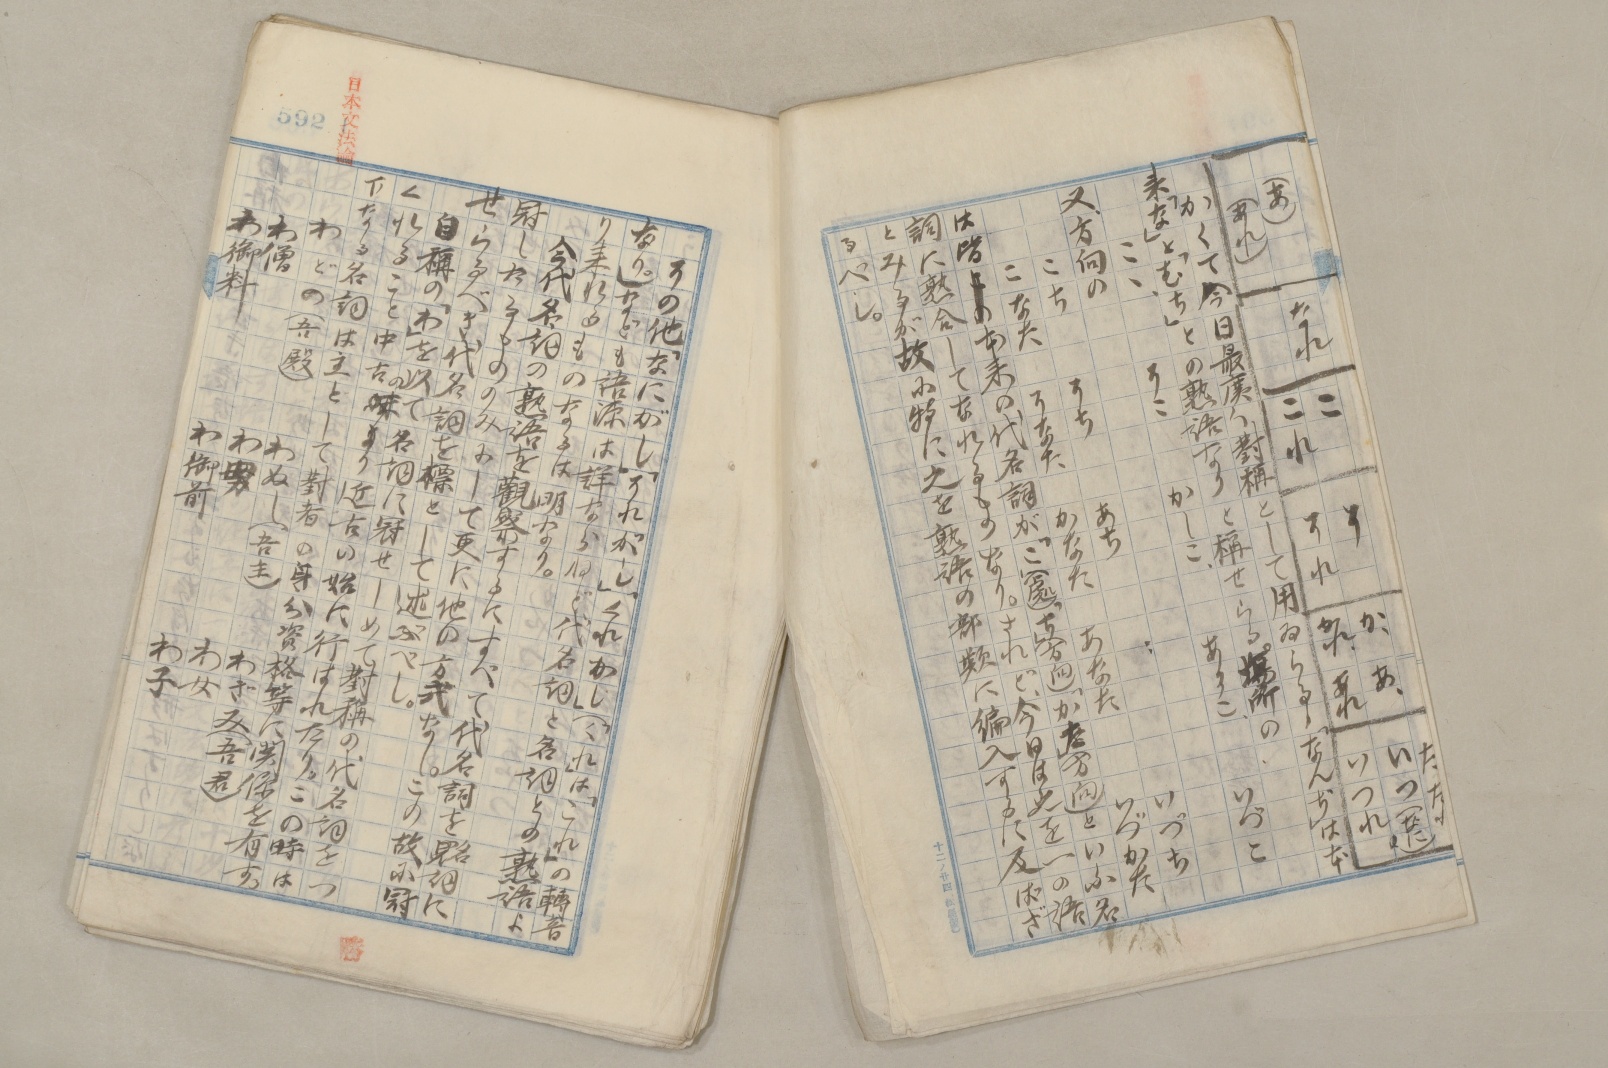 (あ)
(あれ)
なれ
ここ
これ
そ
それ
か、あ、
かれ、あれ
いつ
いづれ
かくて今日最廣く對稱として用ゐらるゝ「なんぢ」は本
来「な」と「むち」との熟語なりと稱せらる。場所の
ここ、そこ、かしこ、あそこ、いづこ
又、方向の
こち そち あち いづち
こなた そなた かなた あなた いづかた
は皆本来の代名詞が「こ(處)」「ち(方向)」「かた(方向)」といふ名
詞に熟合してなれるものなり。されど、今日は之を一の語
とみるが故に特に之を熟語の部類に編入するに及ばざ
るべし。
592
日本文法論
その他「なにがし」「それがし」「くれがし」(「くれ」は「これ」の轉音
なり。)なども語源は詳ならねど代名詞と名詞との熟語よ
り来れるものなるは明なり。
今代名詞の熟語を觀察するにすべて代名詞を名詞に
冠したるもののみにして更に他の方式なし。この故に冠
せらるべき代名詞を標として述ぶべし。
自稱の「わ」を以て名詞に冠せしめて對稱の代名詞をつ
くれること中古の末より近古の始に行はれたり。この時は
下なる名詞は主として對者の身分資格等に関係を有す
わどの(吾殿) わぬし(吾主) わぎみ(吾君)
わ僧 わ男 わ女
わ御料 わ御前 わ子